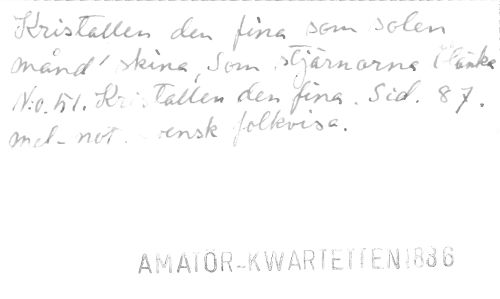 Kristallen den fina som solen
månd' skina, Som stjärnorna blänka
N:o. 51. Kristallen den fina. Sid. 87.
mel- not. svensk folkvisa.
AMATÖR-KWARTETTEN 1886